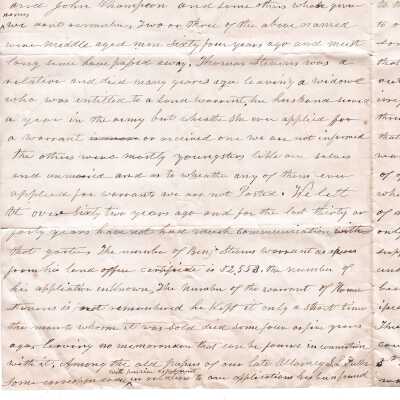 and John Thompson and some others whose given
names
we cant remember, Two or three of the above named
were middle aged men Sixty four years ago and must
long since have passed away. Thomas Stevens was a
relative and died many years ago leaving a widow
who was entitled to a land warrant, her husband served
a year in the army but whether she ever applied for
a warrant or received one we are not informed
the others were mostly youngsters like our selves
and unmarried and as to whether any of them ever
applied for warrants we are not Posted. We left
over Sixty two years ago and for the last thirty or
forty years have not had much communication with
that quarter. The number of Benj. Stevens warrant as
from his land office certificate is 52,558. the number of
his application unknown, The number of the warrant of
Stevens is not remembered he kept it only a short time
the man to whom it was sold died some four or five years
ago, leaving no memorandum that can be found in connection
with it. Among the old papers of our late Attorney
with pension department
Some correspondence in relation to our applications has been found